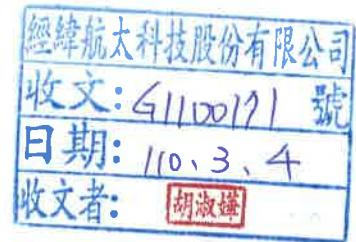 經緯航太科技股份有限公司
收文:G1100171 號
日期:110、3、4
收文者:胡淑嬅